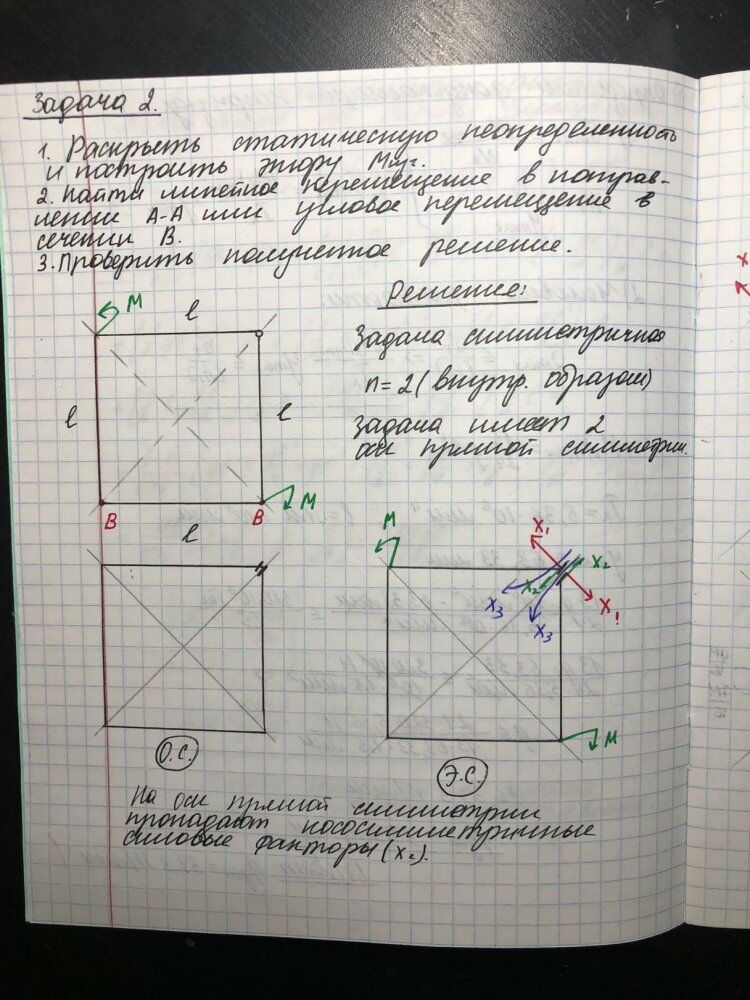 Задача 2.
1. Раскрыть статическую неопределенность
и построить эпюру Mизг.
2. Найти линейное перемещение в направ-
лении А-А или угловое перемещение в
сечении В.
3. Проверить полученное решение.
Решение:
M
l
Задача симметричная
n=2 (внутр. образом)
l
l
Задача имеет 2
оси прямой симметрии.
B
B
M
l
M
X₁
X₂
X₂
X₃
X₃
X₁
О.С.
M
Э.С.
На оси прямой симметрии
пропадают кососимметричные
силовые факторы (X₂).